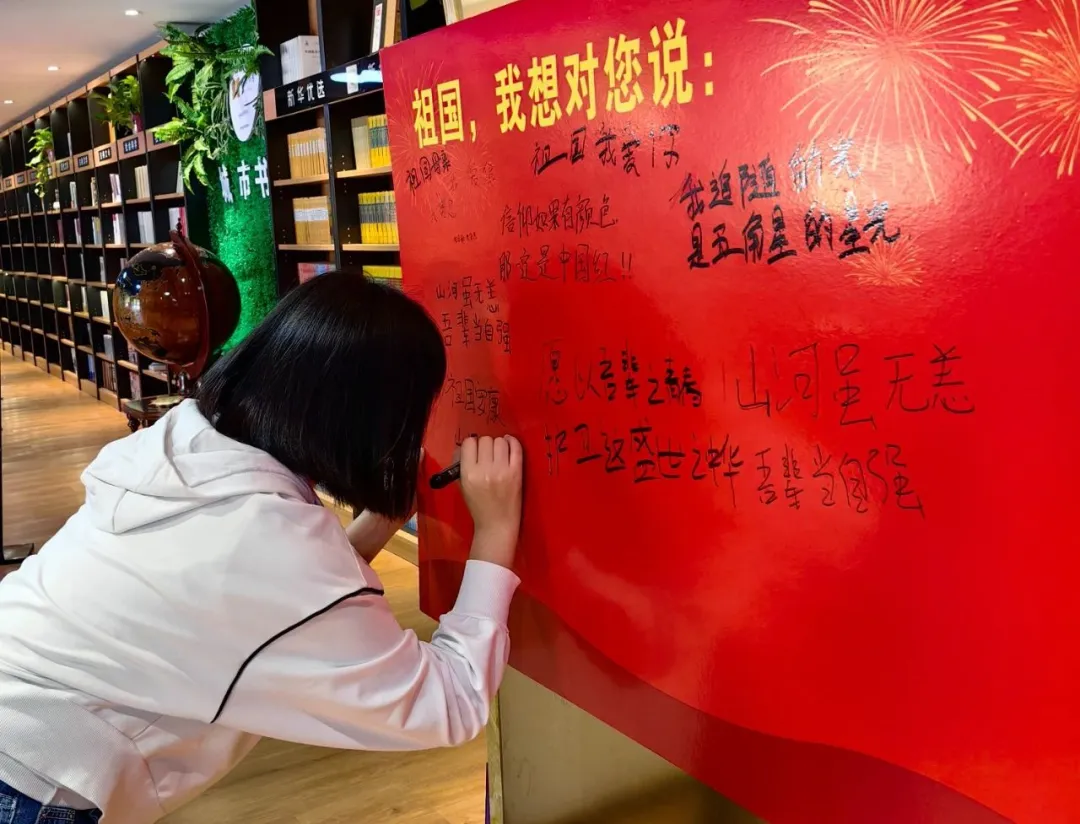 祖国，我想对您说：
新华优选
城市书
祖国母亲
祖国我爱你
我追随的光
是五角星的星光
信仰如果有颜色
那一定是中国红!!
山河虽无恙
吾辈当自强
愿以吾辈之青春
护卫这盛世之中华
山河虽无恙
吾辈当自强
祖国安康
山